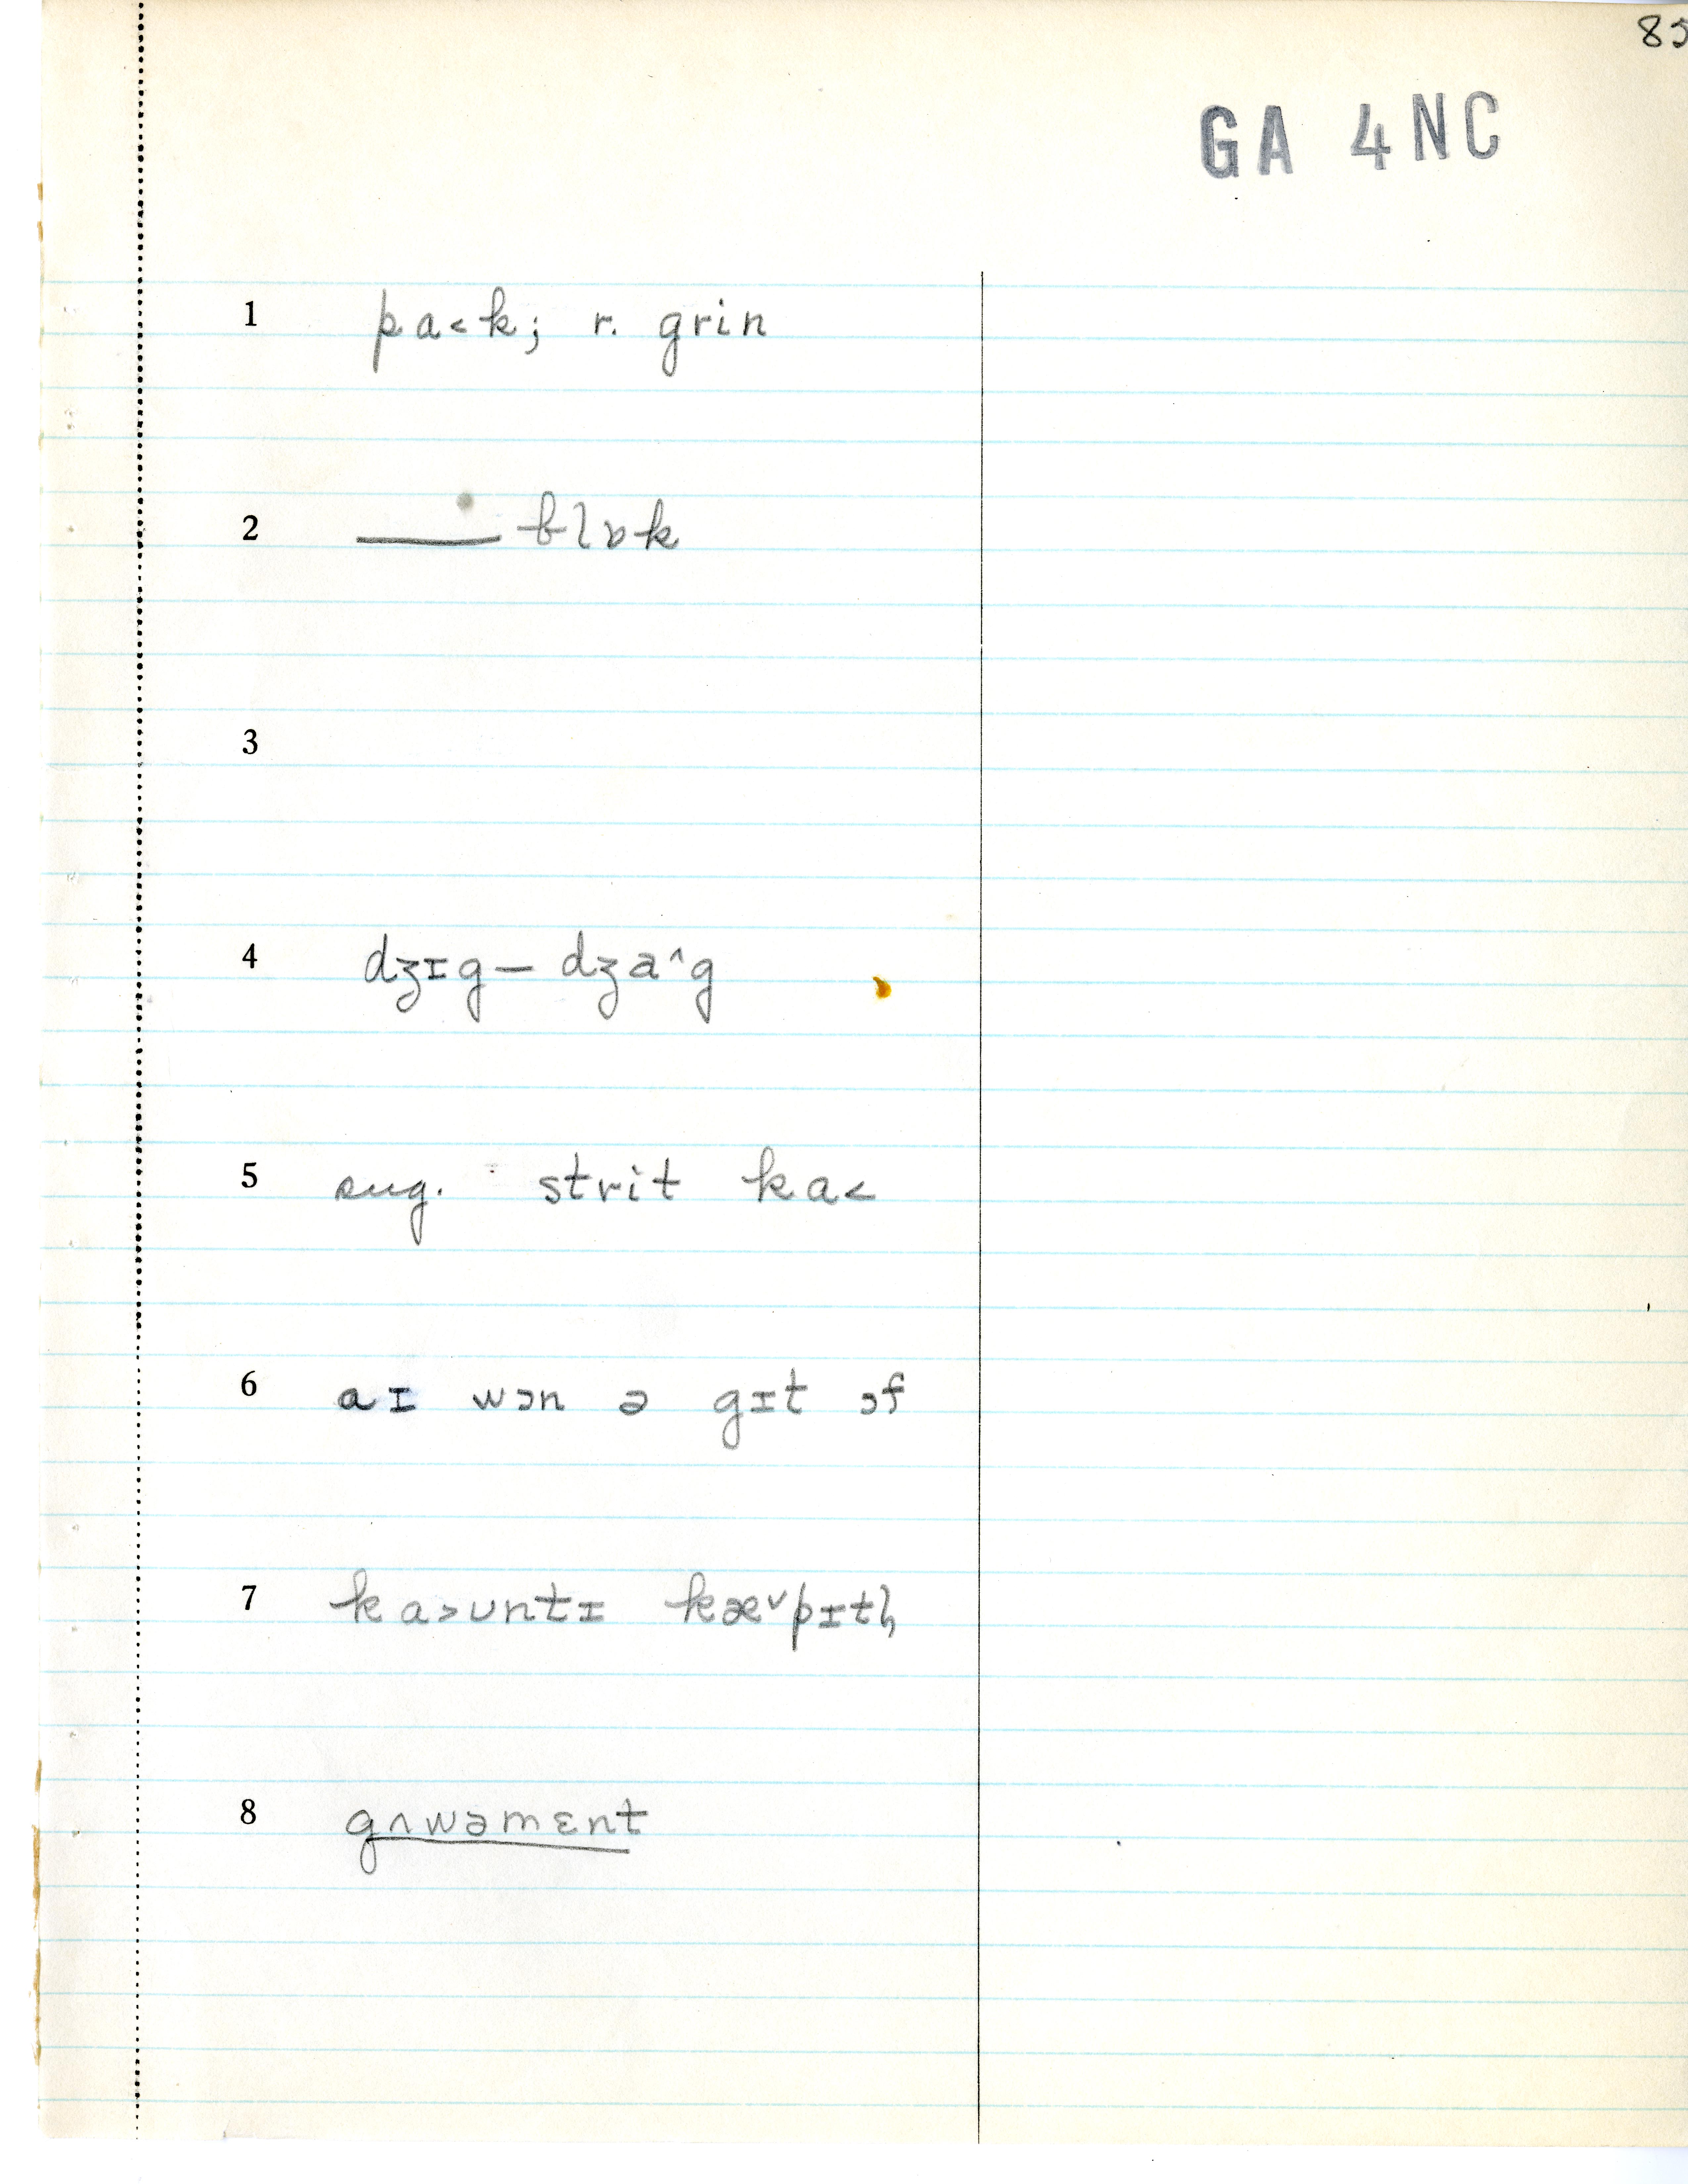 85
GA 4NC
1 pa˂k; r. grin
2 ___ blɒk
3
4 dʒɪg – dʒa^g
5 sug. strit ka˂
6 aɪ wɔn ə gɪt ɔf
7 ka˃ʊntɪ kæ˅pɪtl̩
8 gʌwəmɛnt